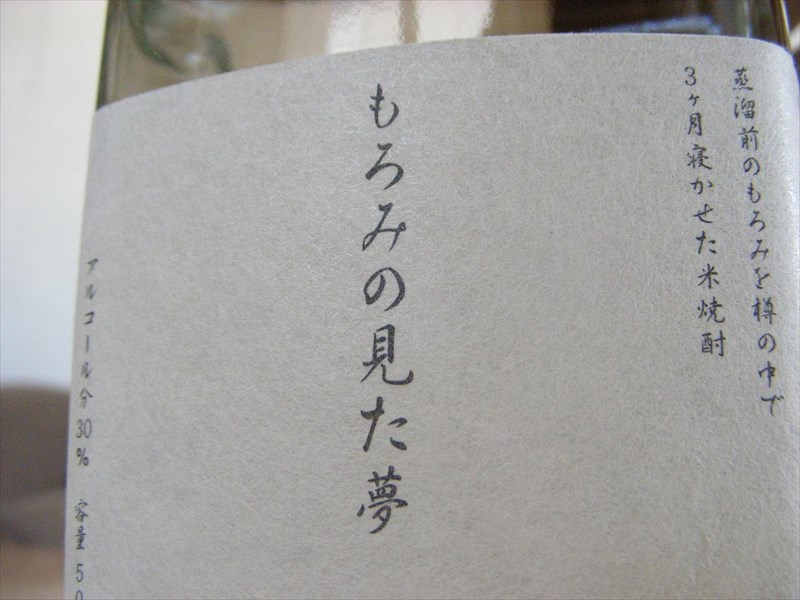 蒸溜前のもろみを樽の中で
3ヶ月寝かせた米焼酎
もろみの見た夢
アルコール分30% 容量50